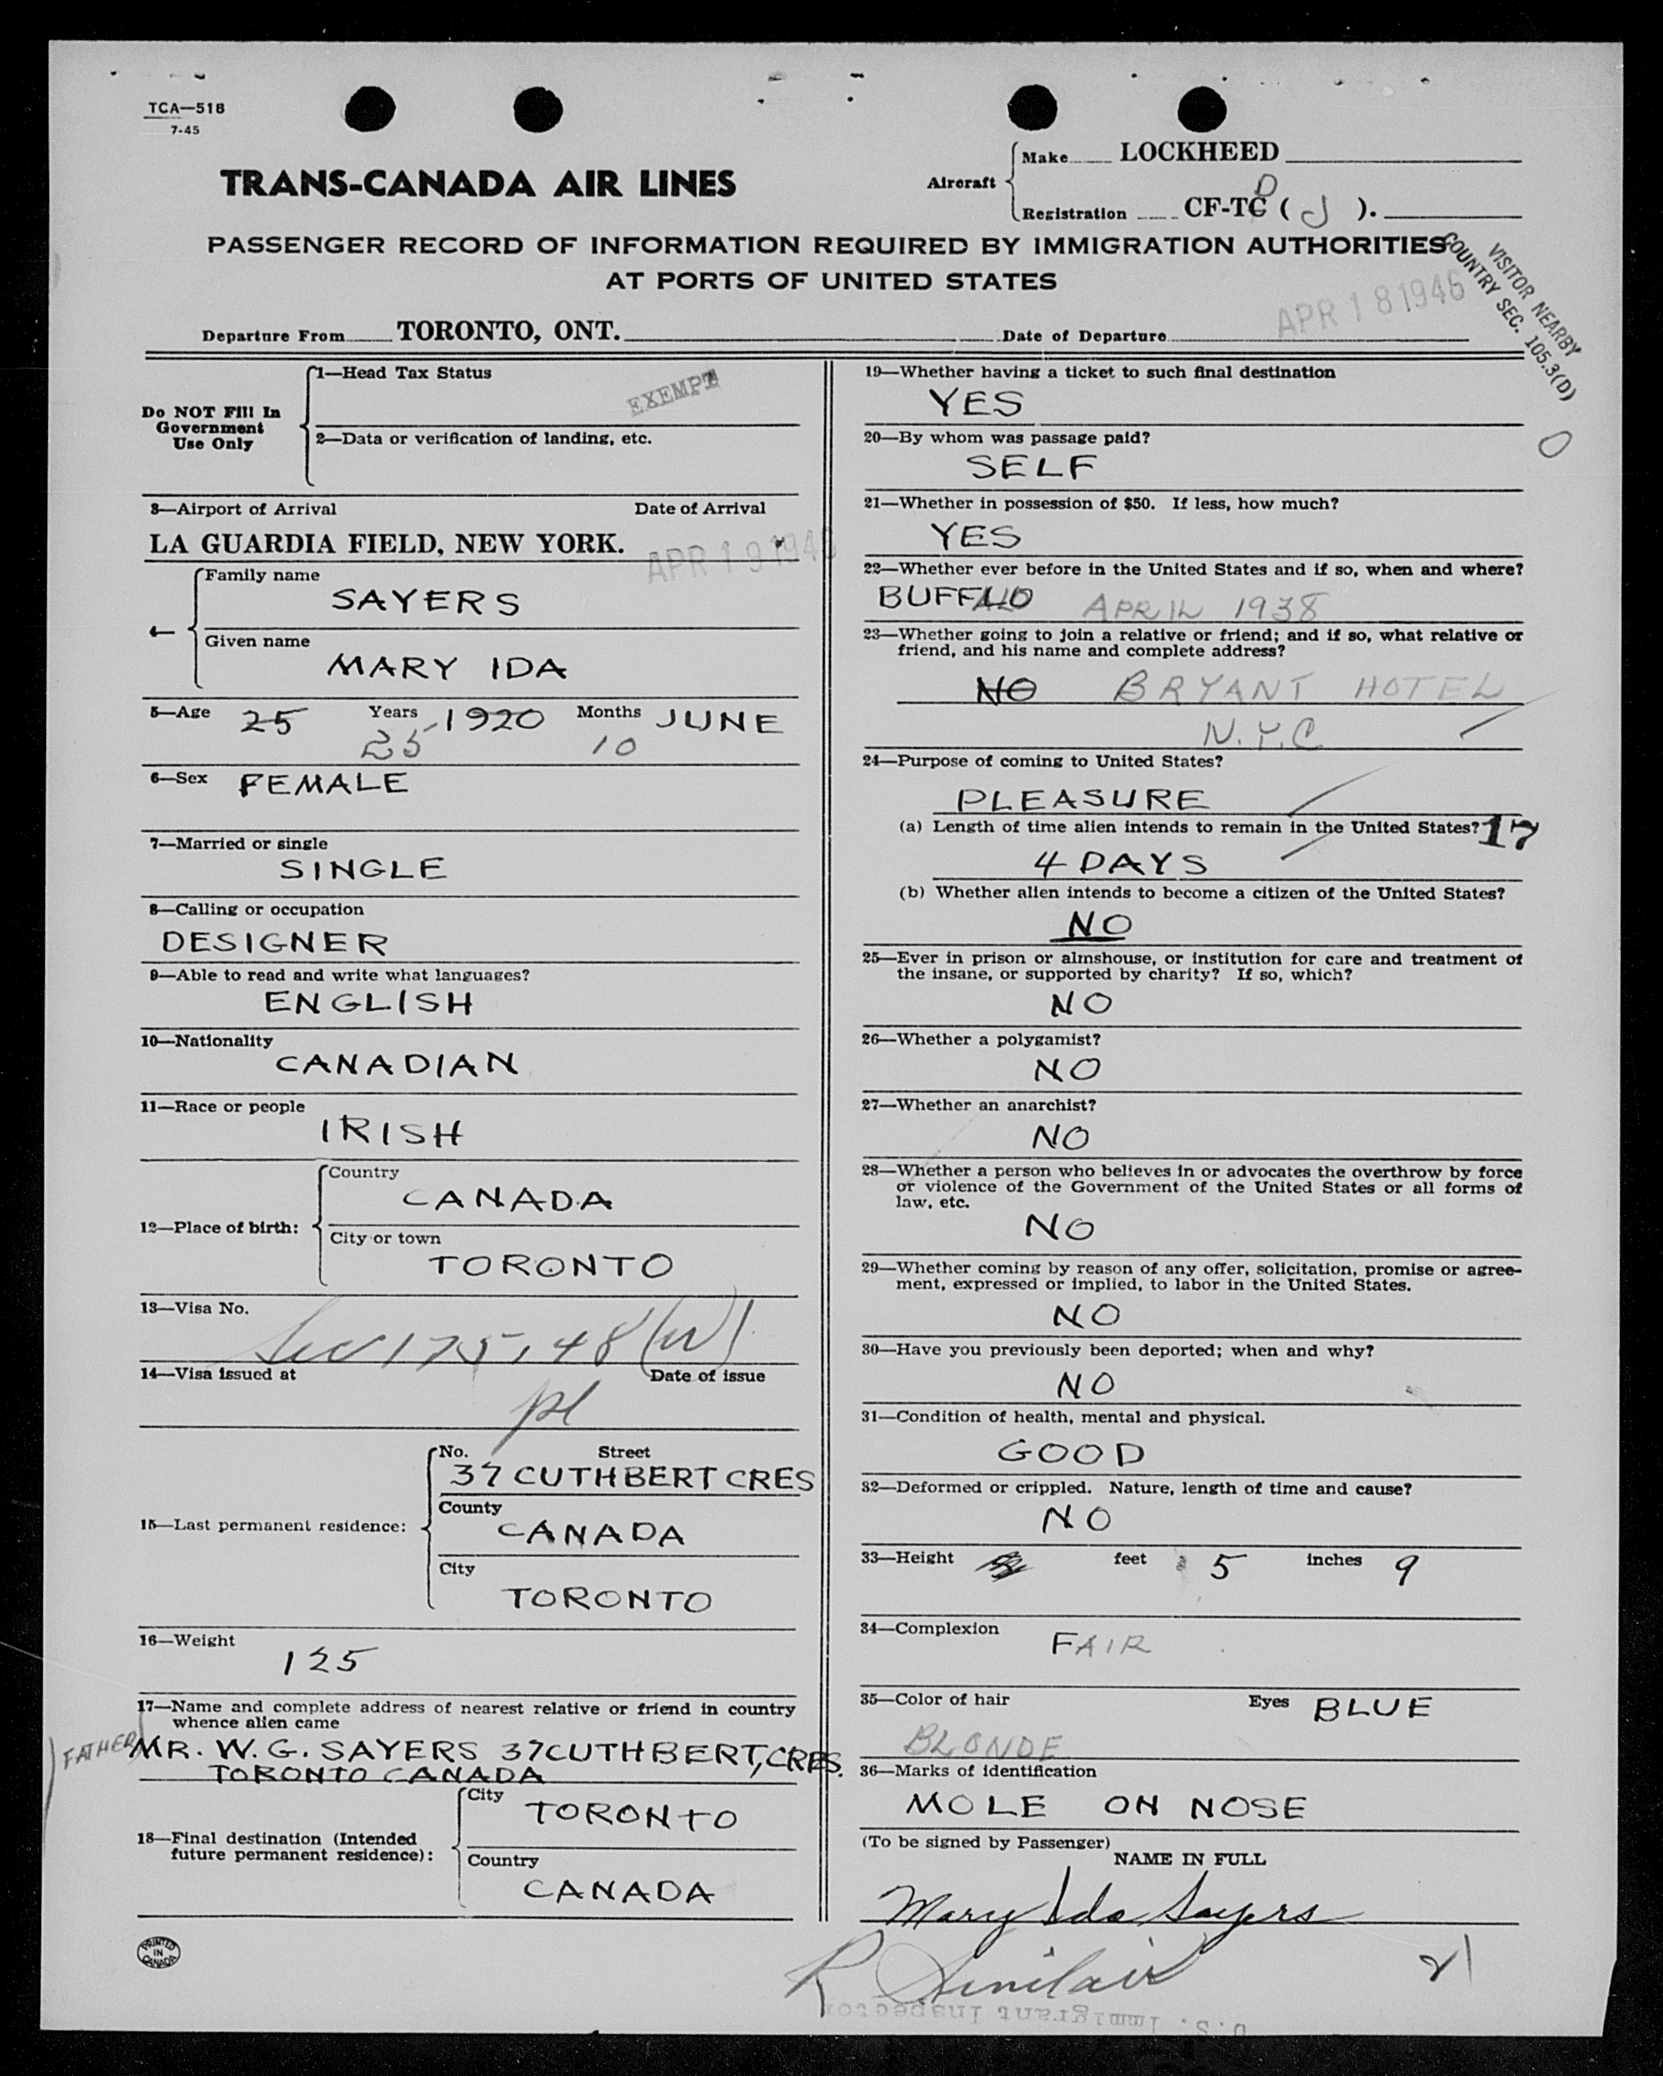 TCA—518
7-45
TRANS-CANADA AIR LINES
Aircraft
Make LOCKHEED
Registration CF-TC D ( J ).
PASSENGER RECORD OF INFORMATION REQUIRED BY IMMIGRATION AUTHORITIES
AT PORTS OF UNITED STATES
VISITOR NEARBY
COUNTRY SEC. 105.3(D)
Departure From TORONTO, ONT. Date of Departure APR 18 1946
Do NOT Fill In
Government
Use Only
1—Head Tax Status
EXEMPT
2—Data or verification of landing, etc.
3—Airport of Arrival Date of Arrival
LA GUARDIA FIELD, NEW YORK. APR 19 1946
4—
Family name
SAYERS
Given name
MARY IDA
5—Age 25 Years 1920 Months JUNE
25 10
6—Sex FEMALE
7—Married or single
SINGLE
8—Calling or occupation
DESIGNER
9—Able to read and write what languages?
ENGLISH
10—Nationality
CANADIAN
11—Race or people
IRISH
12—Place of birth:
Country
CANADA
City or town
TORONTO
13—Visa No.
Sec 175.48 (W)
14—Visa issued at Date of issue
15—Last permanent residence:
No. Street
37 CUTHBERT CRES
County
CANADA
City
TORONTO
16—Weight
125
17—Name and complete address of nearest relative or friend in country
whence alien came
FATHER
MR. W. G. SAYERS 37 CUTHBERT, CRES.
TORONTO CANADA
18—Final destination (Intended
future permanent residence):
City
TORONTO
Country
CANADA
PRINTED
IN
CANADA
19—Whether having a ticket to such final destination
YES
0
20—By whom was passage paid?
SELF
21—Whether in possession of $50. If less, how much?
YES
22—Whether ever before in the United States and if so, when and where?
BUFFALO APRIL 1938
23—Whether going to join a relative or friend; and if so, what relative or
friend, and his name and complete address?
NO BRYANT HOTEL
N.Y.C
24—Purpose of coming to United States?
PLEASURE
(a) Length of time alien intends to remain in the United States? 17
4 DAYS
(b) Whether alien intends to become a citizen of the United States?
NO
25—Ever in prison or almshouse, or institution for care and treatment of
the insane, or supported by charity? If so, which?
NO
26—Whether a polygamist?
NO
27—Whether an anarchist?
NO
28—Whether a person who believes in or advocates the overthrow by force
or violence of the Government of the United States or all forms of
law, etc.
NO
29—Whether coming by reason of any offer, solicitation, promise or agree-
ment, expressed or implied, to labor in the United States.
NO
30—Have you previously been deported; when and why?
NO
31—Condition of health, mental and physical.
GOOD
32—Deformed or crippled. Nature, length of time and cause?
NO
33—Height feet 5 inches 9
34—Complexion FAIR
35—Color of hair Eyes BLUE
BLONDE
36—Marks of identification
MOLE ON NOSE
(To be signed by Passenger)
NAME IN FULL
Mary Ida Sayers
R Sinclair
21
U.S. Immigrant Inspector